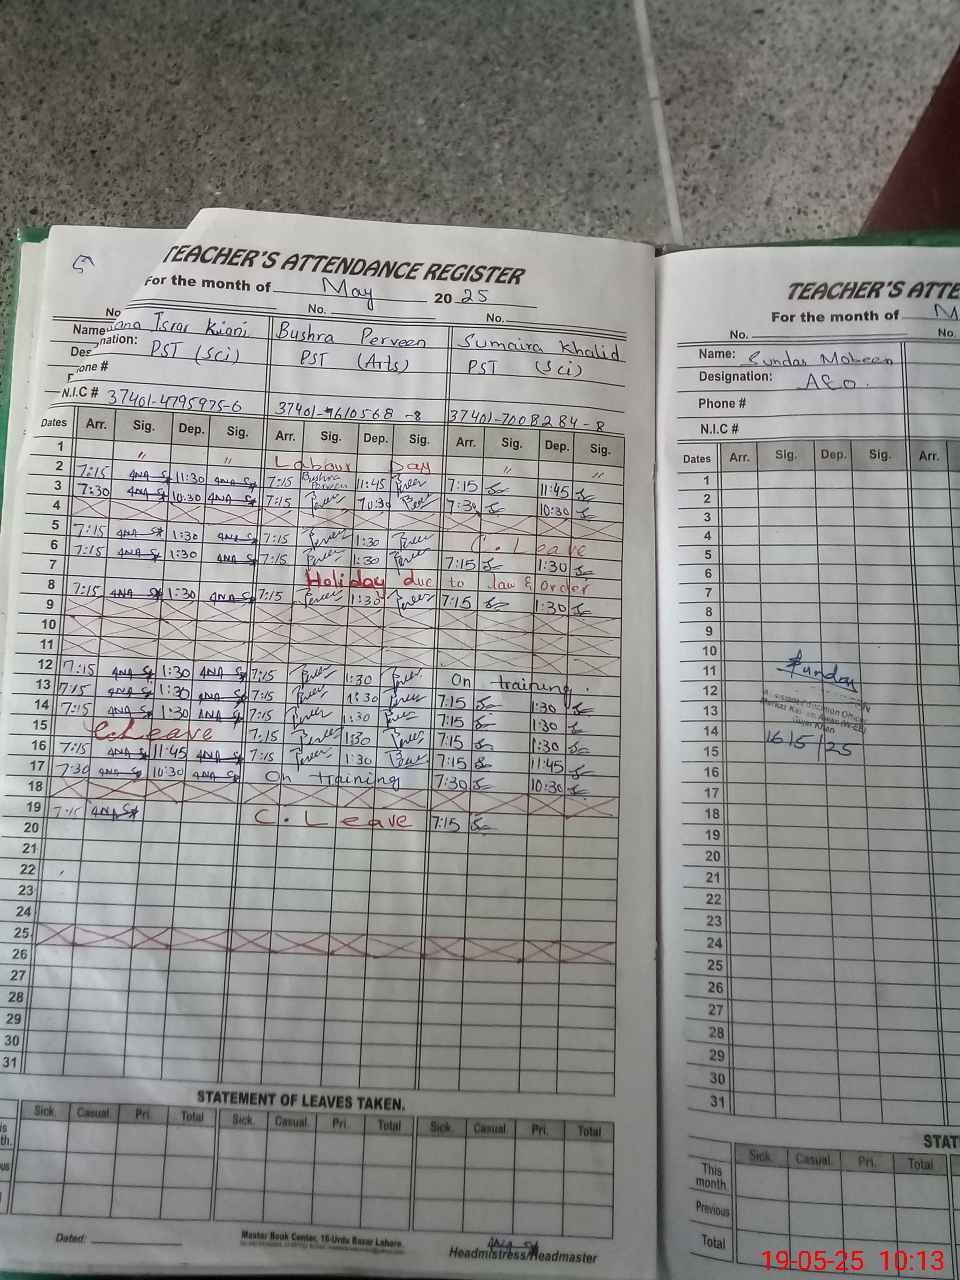 TEACHER'S ATTENDANCE REGISTER
For the month of May 2025
No. No. No.
Name Israr Kiani Bushra Perveen Sumaira Khalid
nation: PST (Sci) PST (Arts) PST (Sci)
N.I.C # 37401-4795975-6 37401-9610568-8 37401-7008284-8
Dates Arr. Sig. Dep. Sig. Arr. Sig. Dep. Sig. Arr. Sig. Dep. Sig.
1 " " Labour Day " "
2 7:15 11:30 7:15 Bushra Perveen 11:45 7:15 11:45
3 7:30 10:30 7:15 10:30 7:30 10:30
4
5 7:15 1:30 7:15 1:30 C. Leave
6 7:15 1:30 7:15 1:30 7:15 1:30
7 Holiday due to law & order
8 7:15 1:30 7:15 1:30 7:15 1:30
9
10
11
12 7:15 1:30 7:15 1:30 On training.
13 7:15 1:30 7:15 1:30 7:15 1:30
14 7:15 1:30 7:15 1:30 7:15 1:30
15 C. Leave 7:15 1:30 7:15 1:30
16 7:15 11:45 7:15 1:30 7:15 11:45
17 7:30 10:30 On training 7:30 10:30
18
19 7:15 C. Leave 7:15
20
21
22
23
24
25
26
27
28
29
30
31
STATEMENT OF LEAVES TAKEN.
Sick. Casual. Pri. Total Sick. Casual. Pri. Total Sick. Casual. Pri. Total
Dated:
Master Book Center, 16-Urdu Bazar Lahore.
Headmistress/Headmaster
TEACHER'S ATTE
For the month of M
No. No.
Name: Sundas Mobeen
Designation: AEO.
Phone #
N.I.C #
Dates Arr. Sig. Dep. Sig. Arr.
1
2
3
4
5
6
7
8
9
10
11 Sundas
12
13
14 16/5/25
15
16
17
18
19
20
21
22
23
24
25
26
27
28
29
30
31
STAT
Sick. Casual. Pri. Total
This month
Previous
Total
19-05-25 10:13